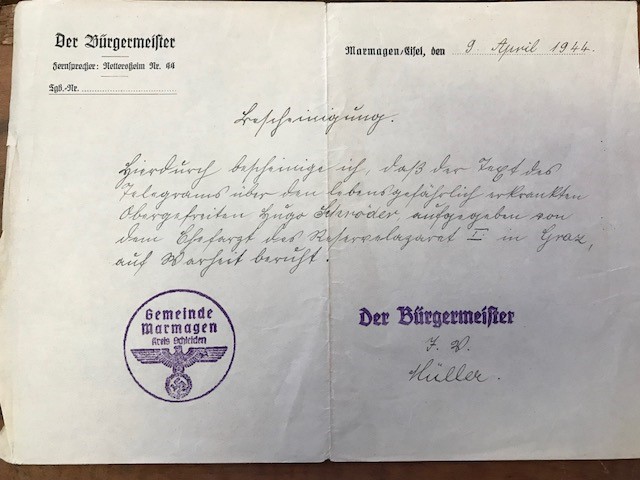 Der Bürgermeister
Fernsprecher: Nettersheim Nr. 44
Tgb.-Nr.
Marmagen/Eifel, den 9. April 1944.
Bescheinigung.
Hierdurch bescheinige ich, daß der Text des
Telegrams über den lebensgefährlich erkrankten
Obergefreiten Hugo Schröder, aufgegeben von
dem Chefarzt des Reservelazaret I in Graz,
auf Warheit beruht.
Gemeinde
Marmagen
Kreis Schleiden
Der Bürgermeister
J. V.
Müller.